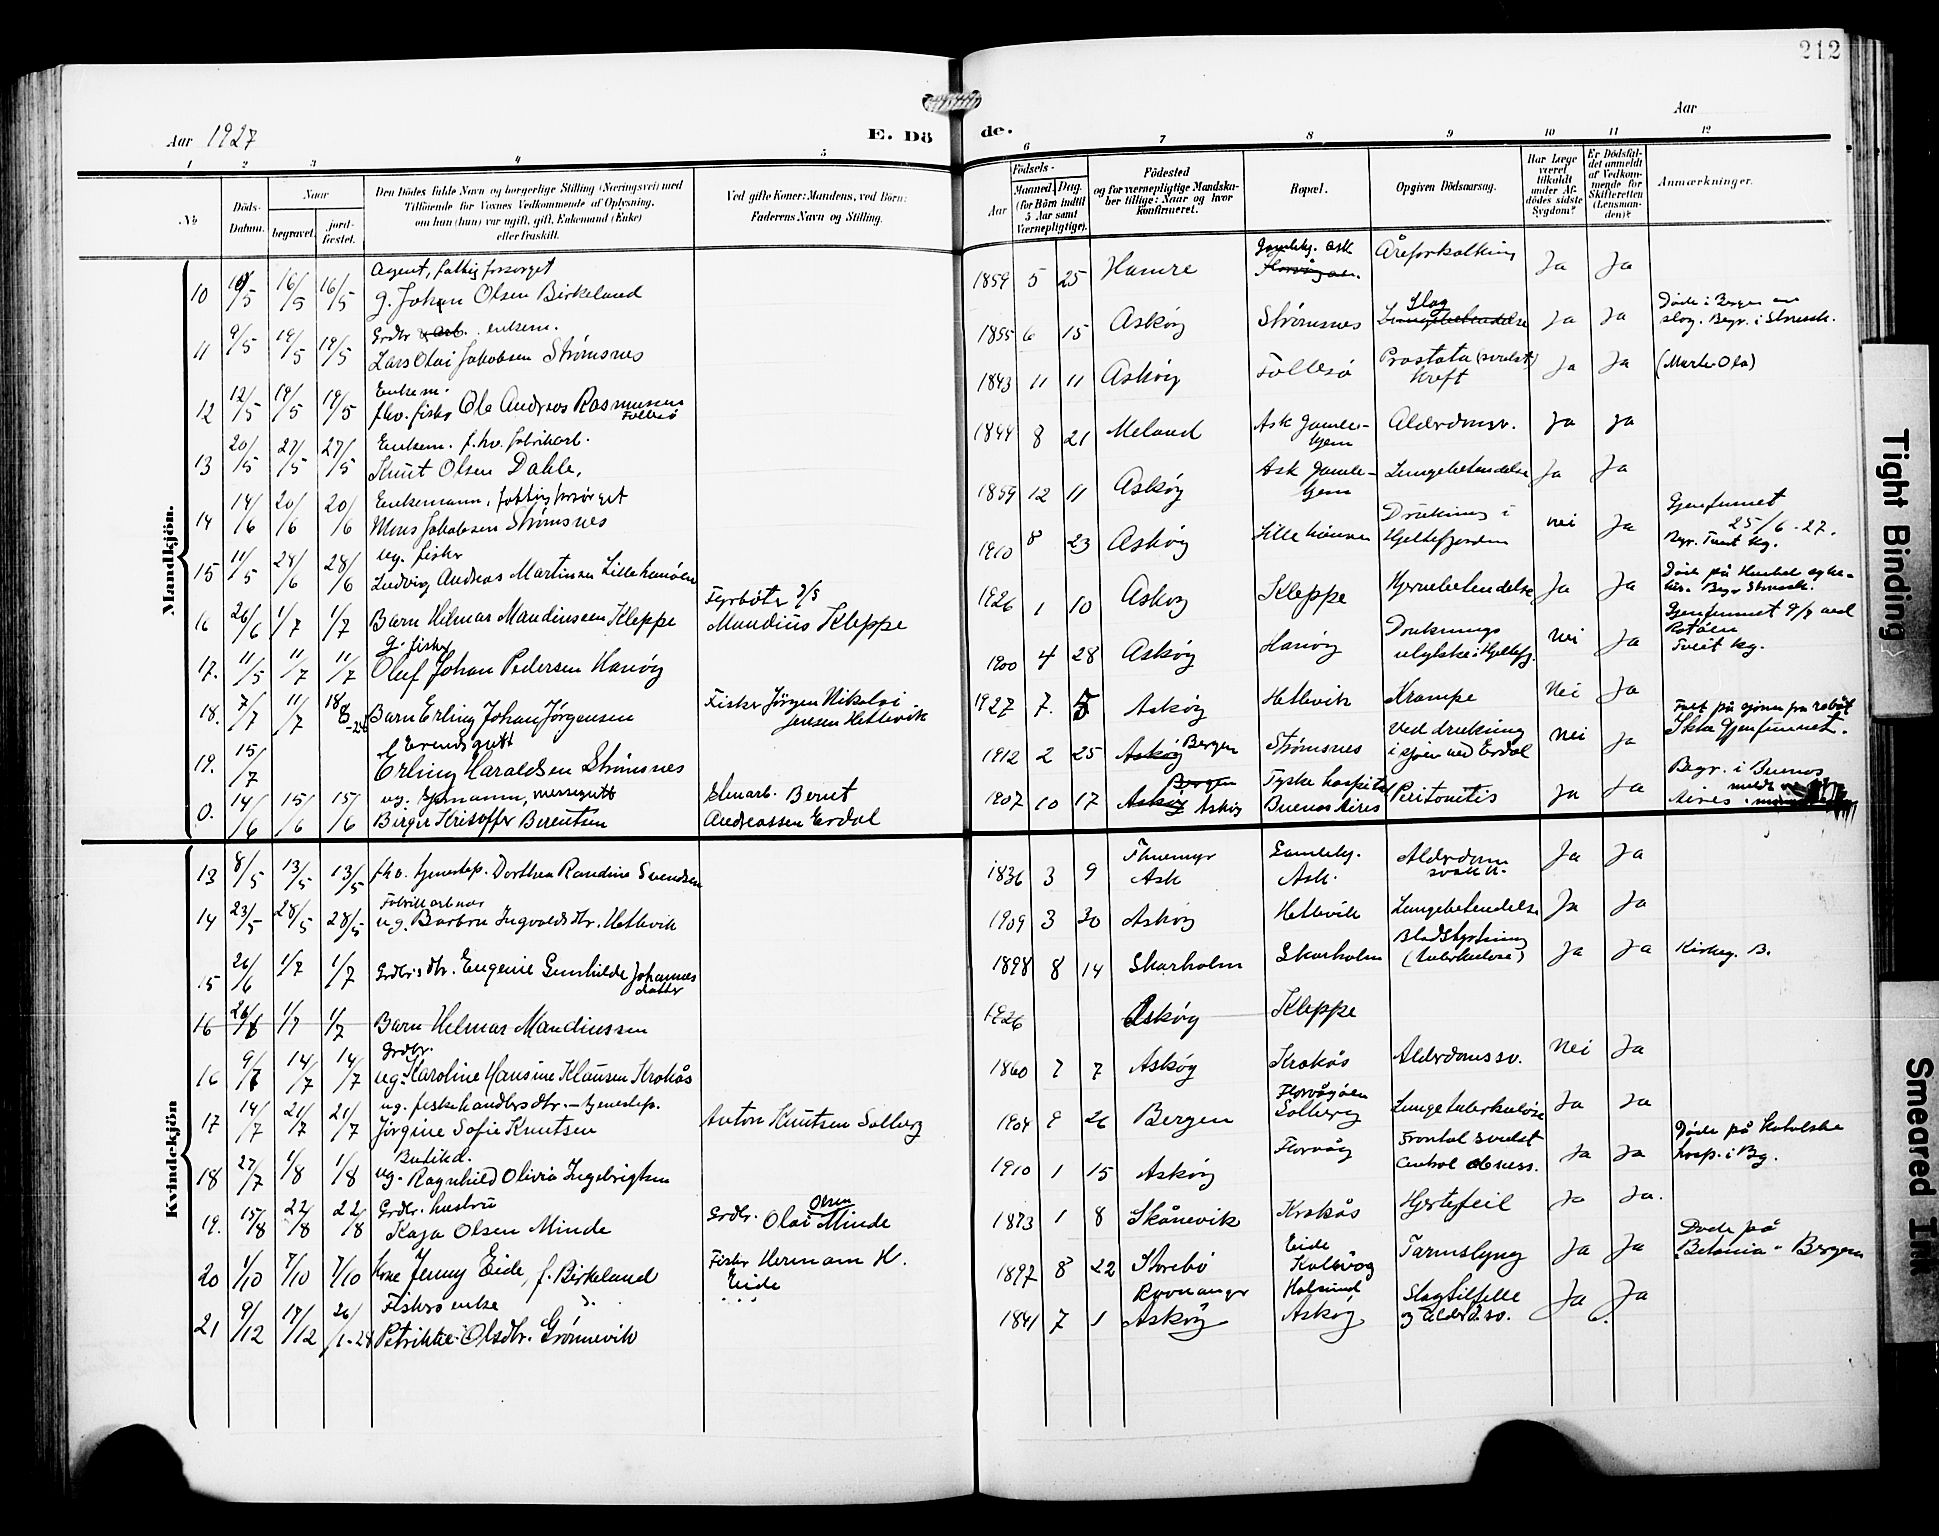 212
Aar 1927
E. Dö
de.
Aar
1 2 3 4 5
6 7 8 9 10 11 12
№
Döds-
Datum.
Naar
begravet.
jord-
fæstet.
Den Dödes fulde Navn og borgerlige Stilling (Næringsvei) med
Tilföiende for Voxnes Vedkommende af Oplysning,
om han (hun) var ugift, gift, Enkemand (Enke)
eller fraskilt.
Ved gifte Koner: Mandens, ved Börn:
Faderens Navn og Stilling.
Födsels-
Aar
Maaned. Dag.
(for Börn indtil
5 Aar samt
Værnepligtige).
Födested
og for værnepligtige Mandska-
ber tillige: Naar og hvor
konfirmeret.
Bopæl.
Opgiven Dödsaarsag.
Har Læge
været
tilkaldt
under Af-
dödes sidste
Sygdom?
Er Dödsfal-
det anmeldt
af Vedkom-
mende for
Skifteretten
(Lensman-
den)?
Anmærkninger.
Mandkjön.
Agent, fattigforsørget
10 16/5 16/5 g. Johan Olsen Birkeland
1859 5 25 Hamre Gamlehj. Ask Åreforkalkning Ja Ja
Grdbr enkem.
11 9/5 19/5 19/5 Lars Olai Jakobsen Strømsnes
1855 6 15 Askøy Strømsnes Slag Lungebetendelse Ja Ja Døde i Bergen
Enkem.
12 12/5 19/5 19/5 fhv. fisker Ole Andreas Rasmussen Follesø
1843 11 11 Askøy Follesø Prostata (svulst) kreft Ja Ja (Marte Ola)
Enkem. f.hv. fabrikarb.
13 20/5 27/5 27/5 Knut Olsen Dahle,
1844 8 21 Meland Ask Gamle-hjem Alderdomsv. Ja Ja
Enkemann, fattigforsørget
14 14/6 20/6 20/6 Mons Jakobsen Strømsnes
1859 12 11 Askøy Ask Gamle-hjem Lungebetendelse Ja Ja
ug. fisker
15 11/5 28/6 28/6 Ludvig Andreas Martinsen Lillehanøen
1910 8 23 Askøy Lillehanøen Drukning i Hjeltefjorden nei Ja Gjenfunnet 25/6-27. Begr. Tveit kg.
16 26/6 1/7 1/7 Barn Hilmar Mandiussen Kleppe Fyrbøter Mandius Kleppe
1926 1 10 Askøy Kleppe Hjernebetendelse Ja Ja
g. fisker
17. 11/5 11/7 11/7 Oluf Johan Pedersen Hanøy
1900 4 28 Askøy Hanøy Druknings ulykke i Hjeltefj. nei Ja Gjenfunnet 9/7 ved Rotøen Tveit kg.
18. 7/7 11/7 Barn Erling Johan Jørgensen Fisker Jörgen Nikolai Jensen Hetlevik
1927 7. 5 Askøy Hetlevik Krampe Nei Ja
19. 15/7 Erling Haraldsen Strømsnes
1912 2 25 Askøy Bergen Strømsnes Ved drukning i sjøen ved Erdal nei Ja Falt på sjøen fra robåt Ikke gjenfunnet.
ug. Sjømann, messegutt
0. 14/6 15/6 15/6 Birger Kristoffer Berentsen Bernt Andreassen Erdal
1907 10 17 Bergen Askøy Askøy Tyske hospital Buenos Aires Peritonitis Ja Ja Begr. i Buenos Aires
Kvindekjön
13 8/5 13/5 13/5 fhv. tjenestep. Dorthea Randine Svendsen
1836 3 9 Ask Gamlehj. Ask. Alderdom svakh. Ja Ja
Fabrikarbeider
14 23/5 28/5 28/5 ug. Barbra Ingvaldsdtr. Hetlevik
1909 3 30 Askøy Hetlevik Lungebetendelse Ja Ja
15 26/6 1/7 1/7 Grdbrsdtr. Eugenie Gunhilde Johannesdatter
1898 8 14 Skarholm Skarholm Blodstyrtning (tuberkulose) Ja Ja Kirkeg. B.
16 26/6 1/7 1/7 Barn Helmar Mandiussen
1926 Askøy Kleppe
Grdbr.
16 9/7 14/7 14/7 ug. Karoline Hansine Klausen Krokås
1860 7 7 Askøy Krokås Alderdomssv. Nei Ja
ug. fiskehandlersdtr. - tjenestep.
17 14/7 21/7 21/7 Jørgine Sofie Knutsen Anton Knutsen Solberg
1904 9 26 Bergen Florvågøen Solberg Lungetuberkuløse Ja Ja
Butikd.
18 27/7 1/8 1/8 ug. Ragnhild Olivia Ingebrigtsen
1910 1 15 Askøy Florvåg Frontal svulst Ja Ja Døde på Katolske hosp. i Bg.
Grdbr. hustru
19. 15/8 22/8 22/8 Kaja Olsen Minde Grdbr. Olai Olsen Minde
1873 1 8 Skånevik Krokås Hjertefeil Ja Ja.
20 1/10 7/10 7/10 Kone Jenny Eide, f. Birkeland Fisker Hermann H. Eide
1897 8 22 Storebø Eide Kollevåg Tarmslyng Ja Ja Døde på Betania - Bergen
Fiskers enke
21 9/12 17/12 26/1-28 Petrikke Olsdtr. Grønnevik
1841 7 1 Askøy Askøy Slagtilfelle og alderd.sv. Ja Ja
Tight Binding
Smeared Ink